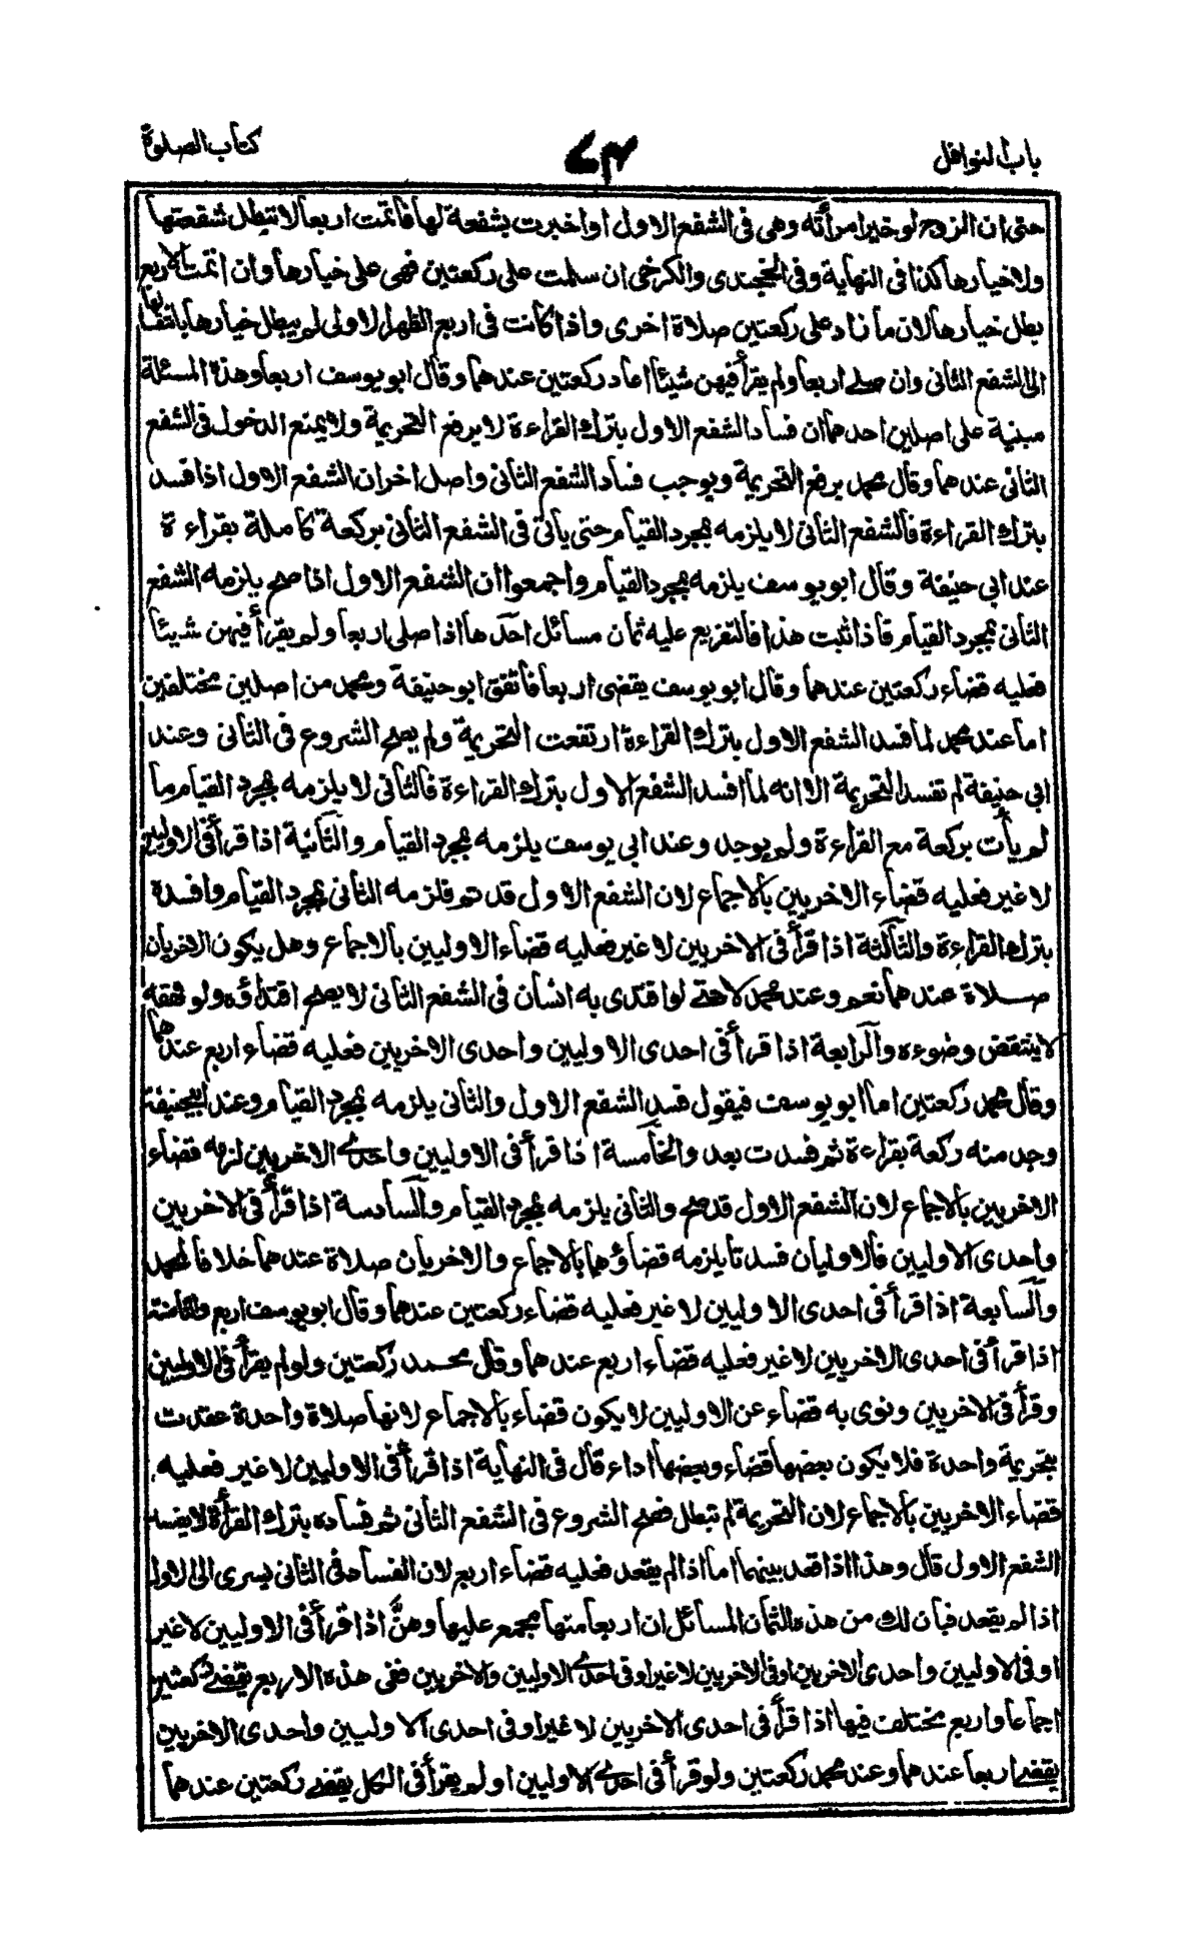 باب النوافل
٧٣
كتاب الصلوة
حتى ان الزوج لو خير امرأته وهى فى الشفع الاول او اخبرت بشفعة لها فاتمت اربعا لا تبطل شفعتها
ولا خيارها كذا فى النهاية وفى الخجندى والكرخى ان سلمت على ركعتين فهى على خيارها وان اتمت الاربع
بطل خيارها لان ما زاد على ركعتين صلاة اخرى واذا كانت فى اربع الظهر الاولى لم يبطل خيارها بانتقالها
الى الشفع الثانى وان صلے اربعا ولم يقرأ فيهن شيئا اعاد ركعتين عندهما وقال ابو يوسف اربعا وهذه المسئلة
مبنية على اصلين احدهما ان فساد الشفع الاول بترك القراءة لا يرفع التحريمة ولا يمنع الدخول فى الشفع
الثانى عندهما وقال محمد يرفع التحريمة ويوجب فساد الشفع الثانى واصل اخر ان الشفع الاول اذا فسد
بترك القراءة فالشفع الثانى لا يلزمه بمجرد القيام حتى يأتى فى الشفع الثانى بركعة كاملة بقراءة
عند ابى حنيفة وقال ابو يوسف يلزمه بمجرد القيام واجمعوا ان الشفع الاول اذا صح يلزمه الشفع
الثانى بمجرد القيام فاذا ثبت هذا فالتفريع عليه ثمان مسائل احدها اذا صلى اربعا ولم يقرأ فيهن شيئا
فعليه قضاء ركعتين عندهما وقال ابو يوسف يقضى اربعا فاتفق ابو حنيفة ومحمد من اصلين مختلفين
اما عند محمد لما فسد الشفع الاول بترك القراءة ارتفعت التحريمة ولم يصح الشروع فى الثانى وعند
ابى حنيفة لم تفسد التحريمة الا انه لما افسد الشفع الاول بترك القراءة فالثانى لا يلزمه بمجرد القيام ما
لم يأت بركعة مع القراءة ولم يوجد وعند ابى يوسف يلزمه بمجرد القيام والثانية اذا قرأ فى الاوليين
لا غير فعليه قضاء الاخريين بالاجماع لان الشفع الاول قد تم فلزمه الثانى بمجرد القيام وافسده
بترك القراءة والثالثة اذا قرأ فى الاخريين لا غير فعليه قضاء الاوليين بالاجماع وهل يكون الاخريان
صلاة عندهما نعم وعند محمد لا حتے لو اقتدى به انسان فى الشفع الثانى لا يصح اقتداؤه ولو قهقه
لا ينتقض وضوءه والرابعة اذا قرأ فى احدى الاوليين واحدى الاخريين فعليه قضاء اربع عندهما
وقال محمد ركعتين اما ابو يوسف فيقول فسد الشفع الاول والثانى يلزمه بمجرد القيام وعند ابيحنيفة
وجد منه ركعة بقراءة ثم فسدت بعد والخامسة اذا قرأ فى الاوليين واحدے الاخريين لزمه قضاء
الاخريين بالاجماع لان الشفع الاول قد صح والثانى يلزمه بمجرد القيام والسادسة اذا قرأ فى الاخريين
واحدى الاوليين فالاوليان فسدتا يلزمه قضاؤهما بالاجماع والاخريان صلاة عندهما خلافا لمحمد
والسابعة اذا قرأ فى احدى الاوليين لا غير فعليه قضاء ركعتين عندهما وقال ابو يوسف اربع والثامنة
اذا قرأ فى احدى الاخريين لا غير فعليه قضاء اربع عندهما وقال محمد ركعتين ولو لم يقرأ فى الاوليين
وقرأ فى الاخريين ونوى به قضاء عن الاوليين لا يكون قضاء بالاجماع لانها صلاة واحدة عقدت
بتحريمة واحدة فلا يكون بعضها قضاء وبعضها اداء قال فى النهاية اذا قرأ فى الاوليين لا غير فعليه
قضاء الاخريين بالاجماع لان التحريمة لم تبطل فصح الشروع فى الشفع الثانى ثم فساده بترك القرأة لا يفسد
الشفع الاول قال وهذا اذا قعد بينهما اما اذا لم يقعد فعليه قضاء اربع لان الفساد فى الثانى يسرى الى الاول
اذا لم يقعد فبان لك من هذه الثمان المسائل ان اربعا منها مجمع عليها وهن اذا قرأ فى الاوليين لا غير
او فى الاوليين واحدى الاخريين او فى الاخريين لا غير او فى احدے الاوليين والاخريين ففى هذه الاربع يقضے ركعتين
اجماعا واربع مختلف فيها اذا قرأ فى احدى الاخريين لا غير او فى احدى الاوليين واحدى الاخريين
يقضے اربعا عندهما وعند محمد ركعتين ولو قرأ فى احدے الاوليين او لم يقرأ فى الكل يقضے ركعتين عندهما